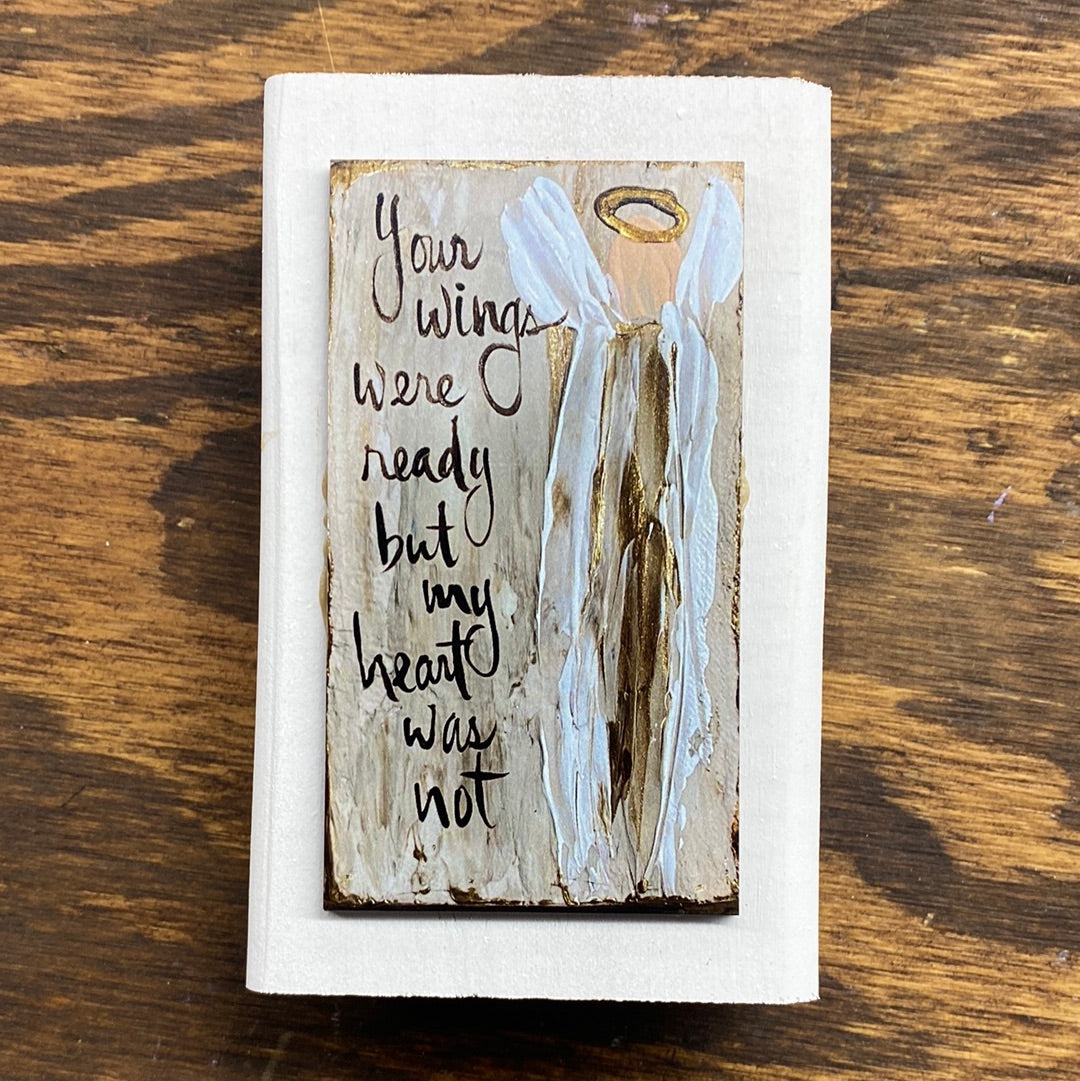 Your
wings
were
ready
but
my
heart
was
not